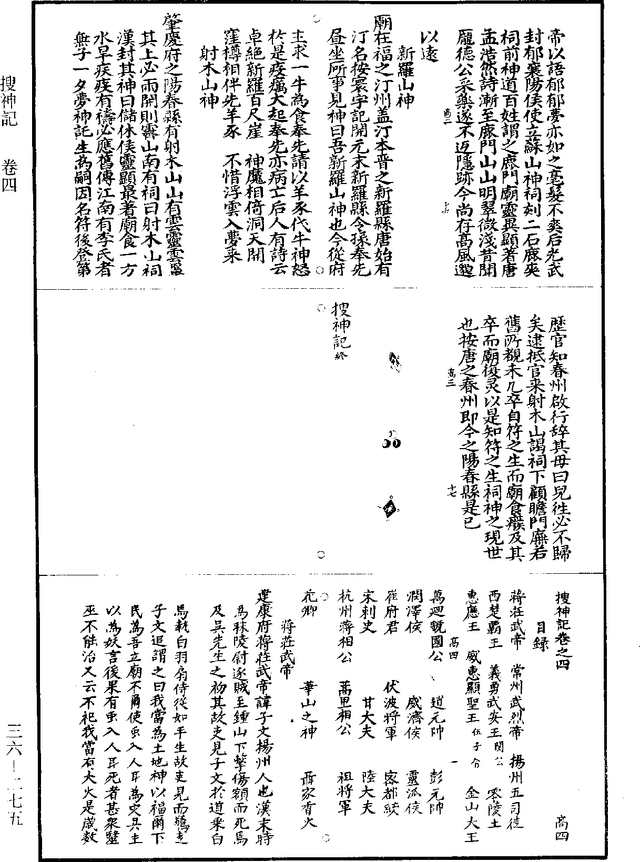 搜神記　卷四
三六—二七五
帝以語郁郁夢亦如之毫髮不爽后光武
封郁襄陽侯使立蘇山神祠刻二石鹿夾
祠前神道百姓謂之鹿門廟靈異顯著唐
孟浩然詩漸至鹿門山山明翠微淺昔聞
龐德公采藥遂不返隱跡今尚存高風邈
以遠
新羅山神
廟在福之汀州蓋汀本晋之新羅縣唐始有
汀名按寰宇記開元末新羅縣令孫奉先
晝坐所事見神曰吾新羅山神也今從府
主求一牛為食奉先請以羊豕代牛神怒
於是疫癘大起奉先亦病亡后人有詩云
卓絕新羅百尺崖　神魔相倚洞天開
窪樽相伴先羊豕　不惜浮雲入夢來
射木山神
肇慶府之陽春縣有射木山山有雲靈雲畐
其上必雨開則霽山南有祠曰射木山祠
漢封其神曰儲休侯靈顯最著廟食一方
水旱疾疫有禱必應舊傳江南有李氏者
無子一夕夢神託生為嗣因名符後登第
歷官知春州啟行辞其母曰兒徃必不歸
矣逮抵官来射木山謁祠下顧瞻門廡若
舊所覩未几卒自符之生而廟食癈及其
卒而廟復灵以是知符之生祠神之現世
也按唐之春州即今之陽春縣是已
高三
十七
搜神記終
搜神記卷之四
高四
目錄
蔣莊武帝　常州武烈帝　揚州五司徒
西楚霸王　義勇武安王関公　零陵王
惠應王　威惠顯聖王伍子胥　金山大王
高四
一
萬迴虢國公　趙元帥　彭元帥
澗澤侯　威濟侯　靈泒侯
崔府君　伏波將軍　宻都統
宋刺史　甘大夫　陸大夫
杭州蔣相公　萬里相公　祖將軍
花卿　華山之神　聶家香火
蔣莊武帝
建康府蔣莊武帝諱子文揚州人也漢末時
為秣陵尉逐賊至鍾山下擊傷額而死焉
及吳先生之初其故吏見子文於道乘白
馬執白羽扇侍從如平生故吏見而驚走
子文追謂之曰我當為土地神以福爾下
民為吾立廟不爾使虫入人耳為灾吳主
以為妖言後果有虫入人耳死者甚衆毉
巫不能治又云不祀我當有大火是歲數